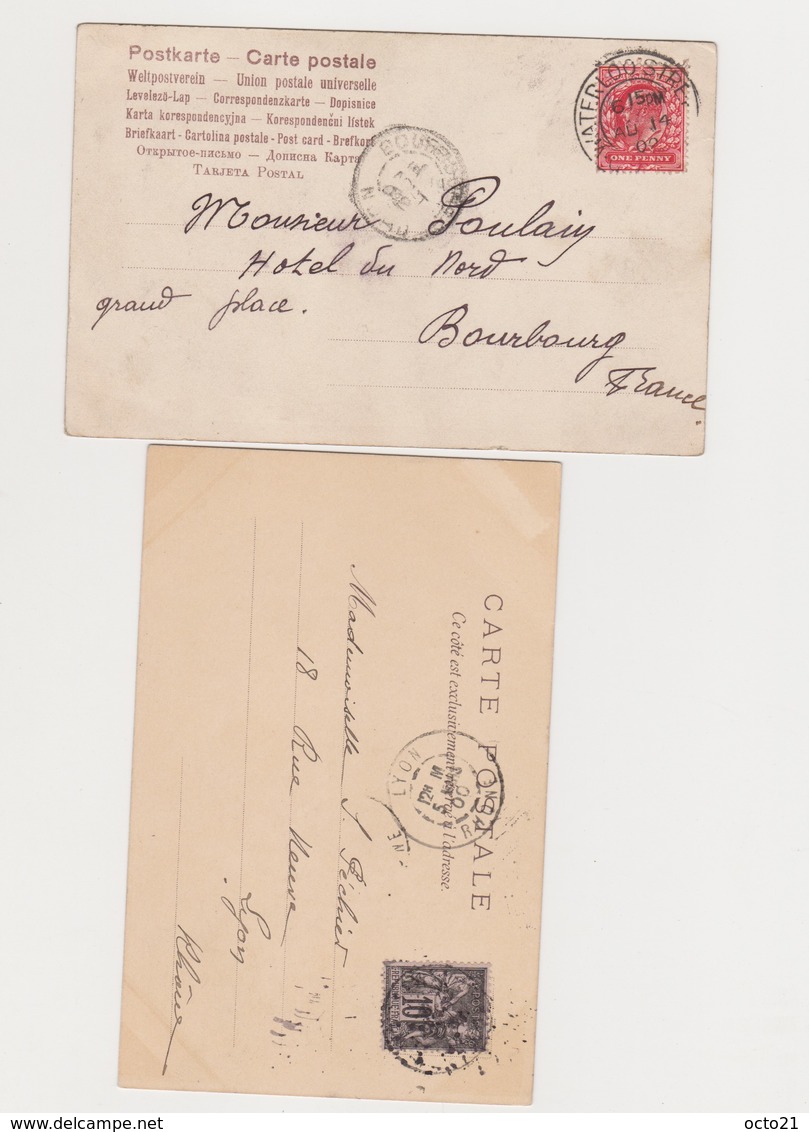 Postkarte – Carte postale
Weltpostverein – Union postale universelle
Levelező-Lap – Correspondenzkarte – Dopisnice
Karta korespondencyjna – Korespondenční lístek
Briefkaart - Cartolina postale - Post card - Brefkort
Открытое-письмо – Дописна Карта
Tarjeta Postal
WATERLOO STRE
615PM
AU 14
ONE PENNY
Monsieur Poulain
Hotel du Nord
grand place.
Bourbourg
France.
CARTE POSTALE
Ce côté est exclusivement réservé à l'adresse.
LYON
Mademoiselle J. Péchier
18 Rue Neuve
Lyon
Rhône
10
octo21